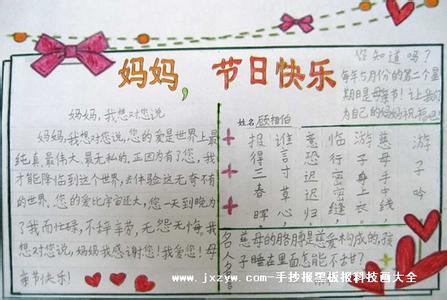 妈妈,节日快乐
你知道吗?
每年5月份的第二个星
期日是母亲节!让我们
为自己的妈妈祝福吧!
妈妈,我想对您说
妈妈,我想对您说,您的爱是世界上最
纯真最伟大最无私的,正因为有了您,我
才能降临到这个世界,去体验这无奇不有
的世界.您的爱比宇宙还大,您一天到晚为
了我而忙碌,不辞辛苦,无怨无悔,我
想对您说,妈妈我感谢您!我爱您!母
亲节快乐!
姓名
游子吟
慈母手中线
游子身上衣
临行密密缝
意恐迟迟归
谁言寸草心
报得三春晖
名 慈母的胳膊是慈爱构成的,孩
人 子睡在里面怎能不甜?
www.jxzyw.com-手抄报黑板报科技画大全